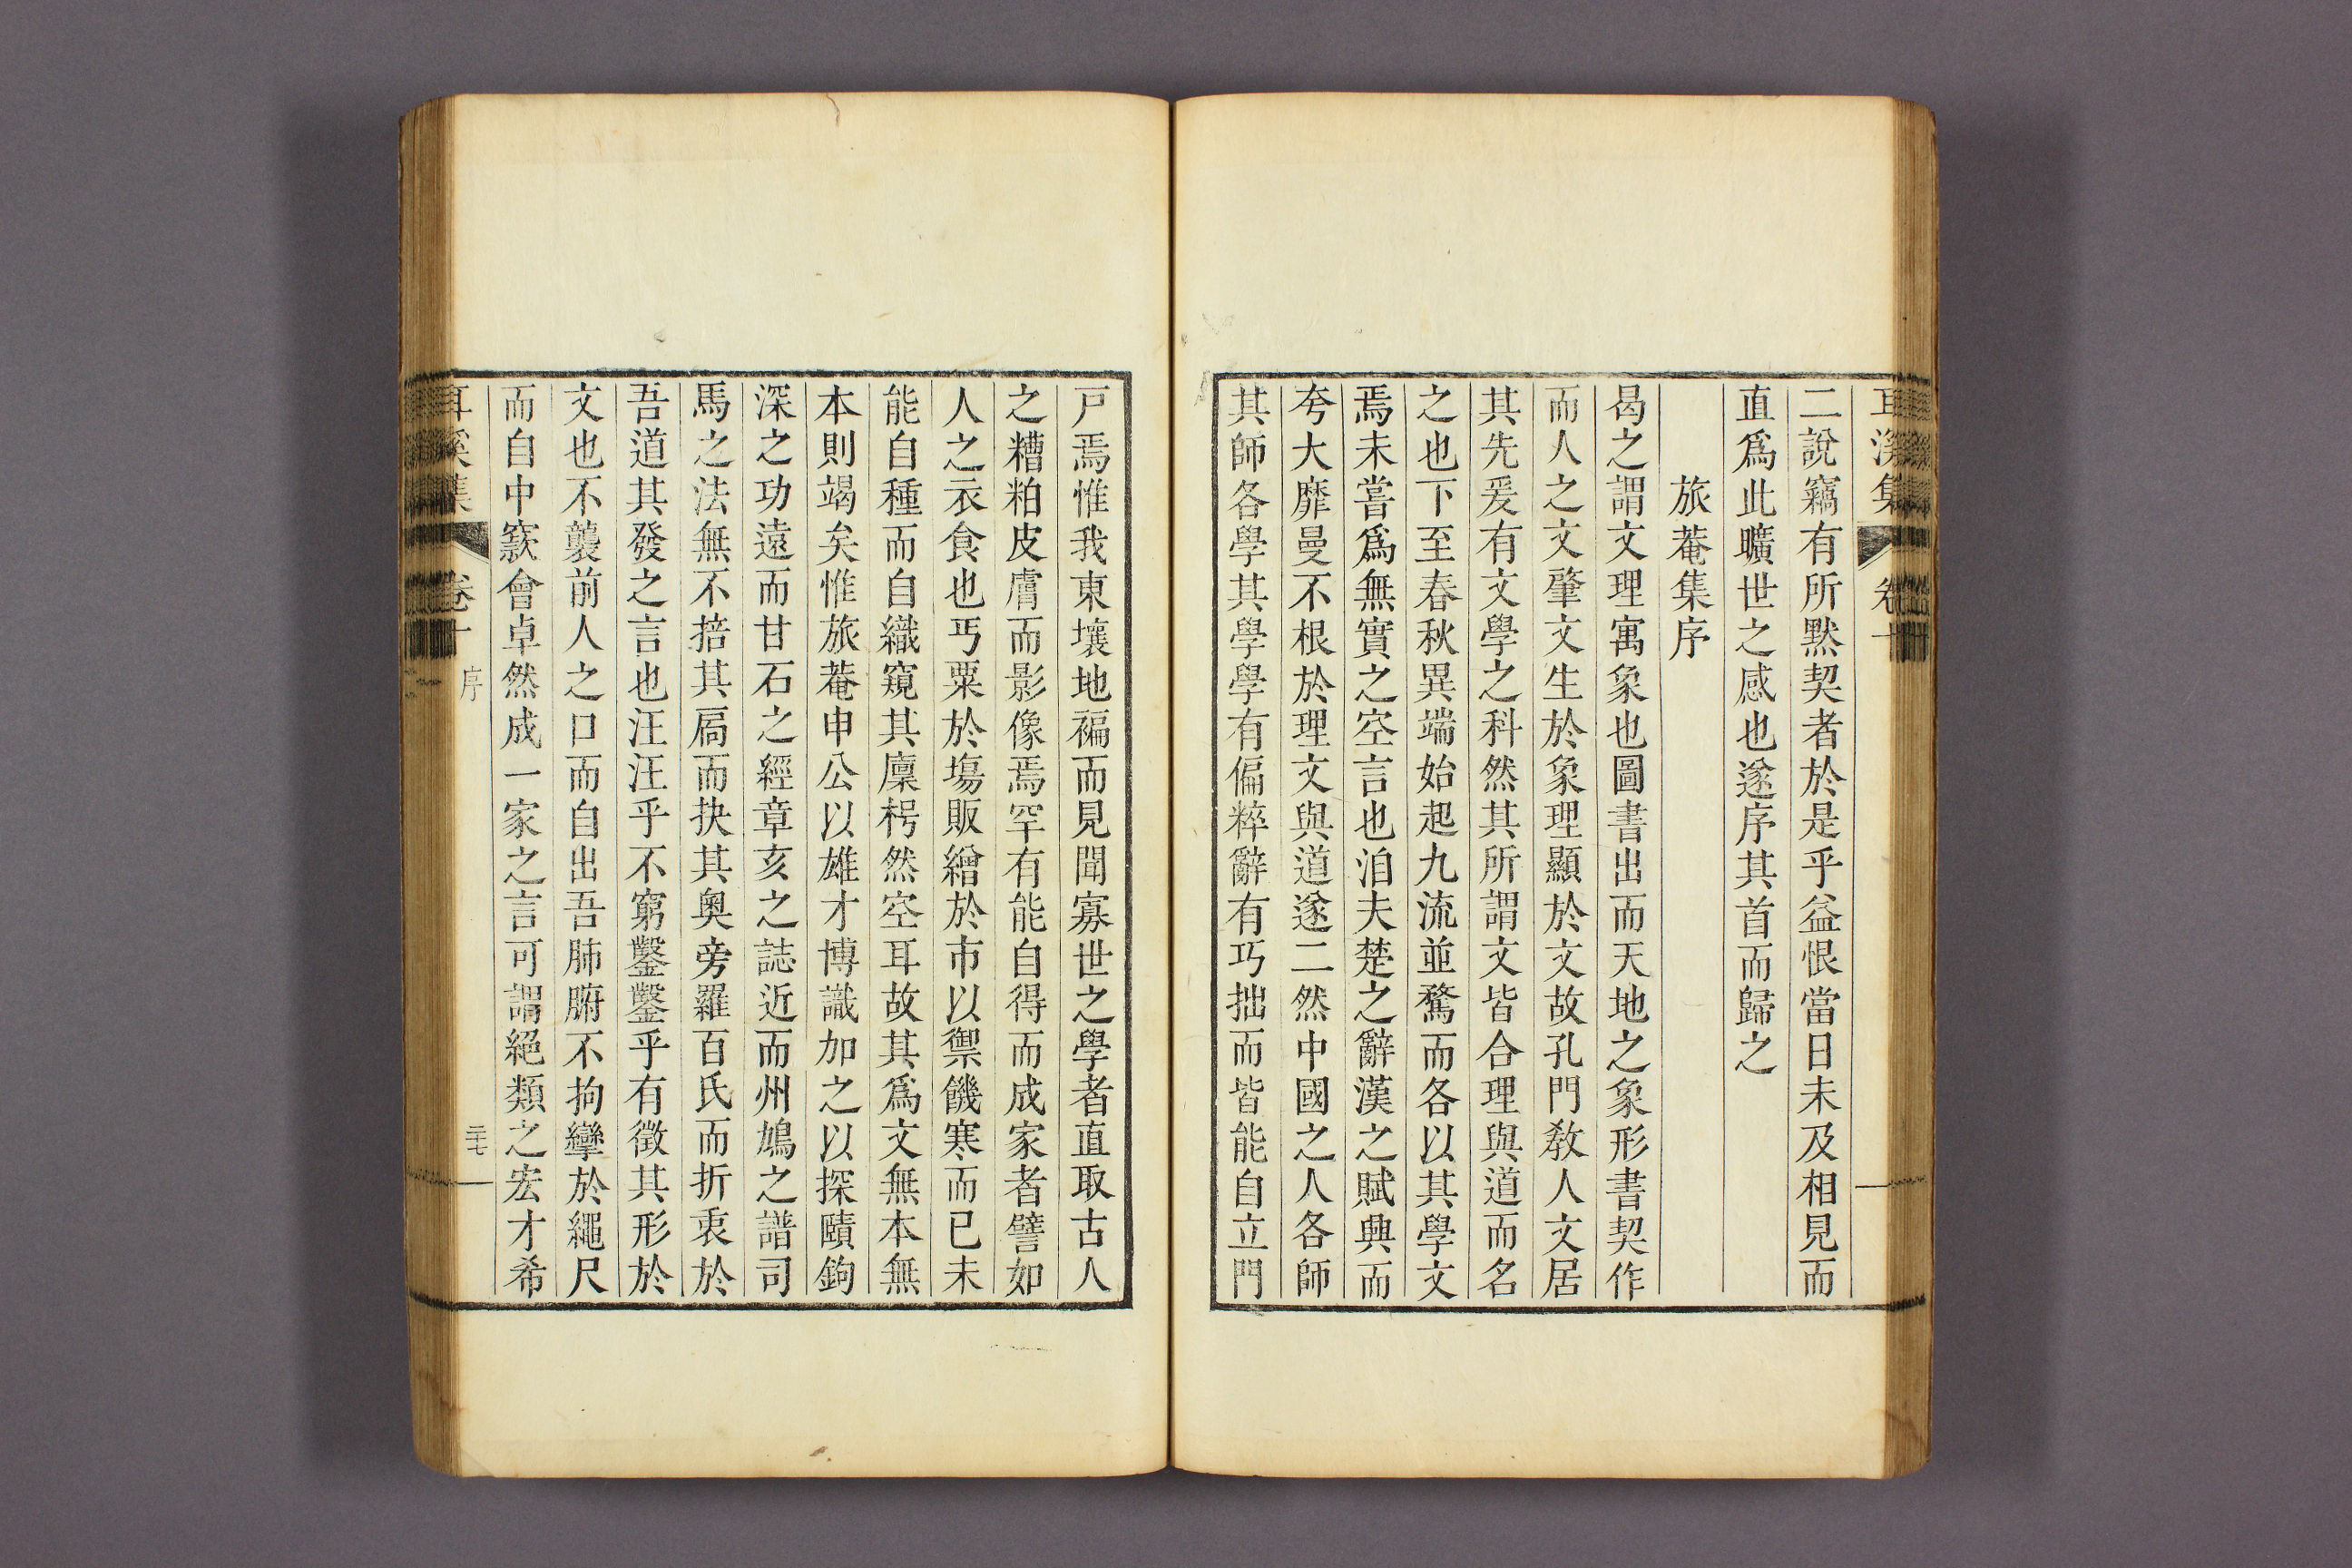 耳溪集 卷十
二說竊有所默契者於是乎益恨當日未及相見而
直爲此曠世之感也遂序其首而歸之
旅菴集序
曷之謂文理寓象也圖書出而天地之象形書契作
而人之文肇文生於象理顯於文故孔門敎人文居
其先爰有文學之科然其所謂文皆合理與道而名
之也下至春秋異端始起九流並騖而各以其學文
焉未甞爲無實之空言也洎夫楚之辭漢之賦興而
夸大靡曼不根於理文與道遂二然中國之人各師
其師各學其學學有偏粹辭有巧拙而皆能自立門
戸焉惟我東壤地褊而見聞寡世之學者直取古人
之糟粕皮膚而影像焉罕有能自得而成家者譬如
人之衣食也丐粟於塲販繒於市以禦饑寒而已未
能自種而自織窺其廩枵然空耳故其爲文無本無
本則竭矣惟旅菴申公以雄才博識加之以探賾鉤
深之功遠而甘石之經章亥之誌近而州鳩之譜司
馬之法無不掊其扃而抉其奧旁羅百氏而折衷於
吾道其發之言也汪汪乎不窮鑿鑿乎有徵其形於
文也不襲前人之口而自出吾肺腑不拘攣於繩尺
而自中窾會卓然成一家之言可謂絕類之宏才希
耳溪集 卷十 序 二十七